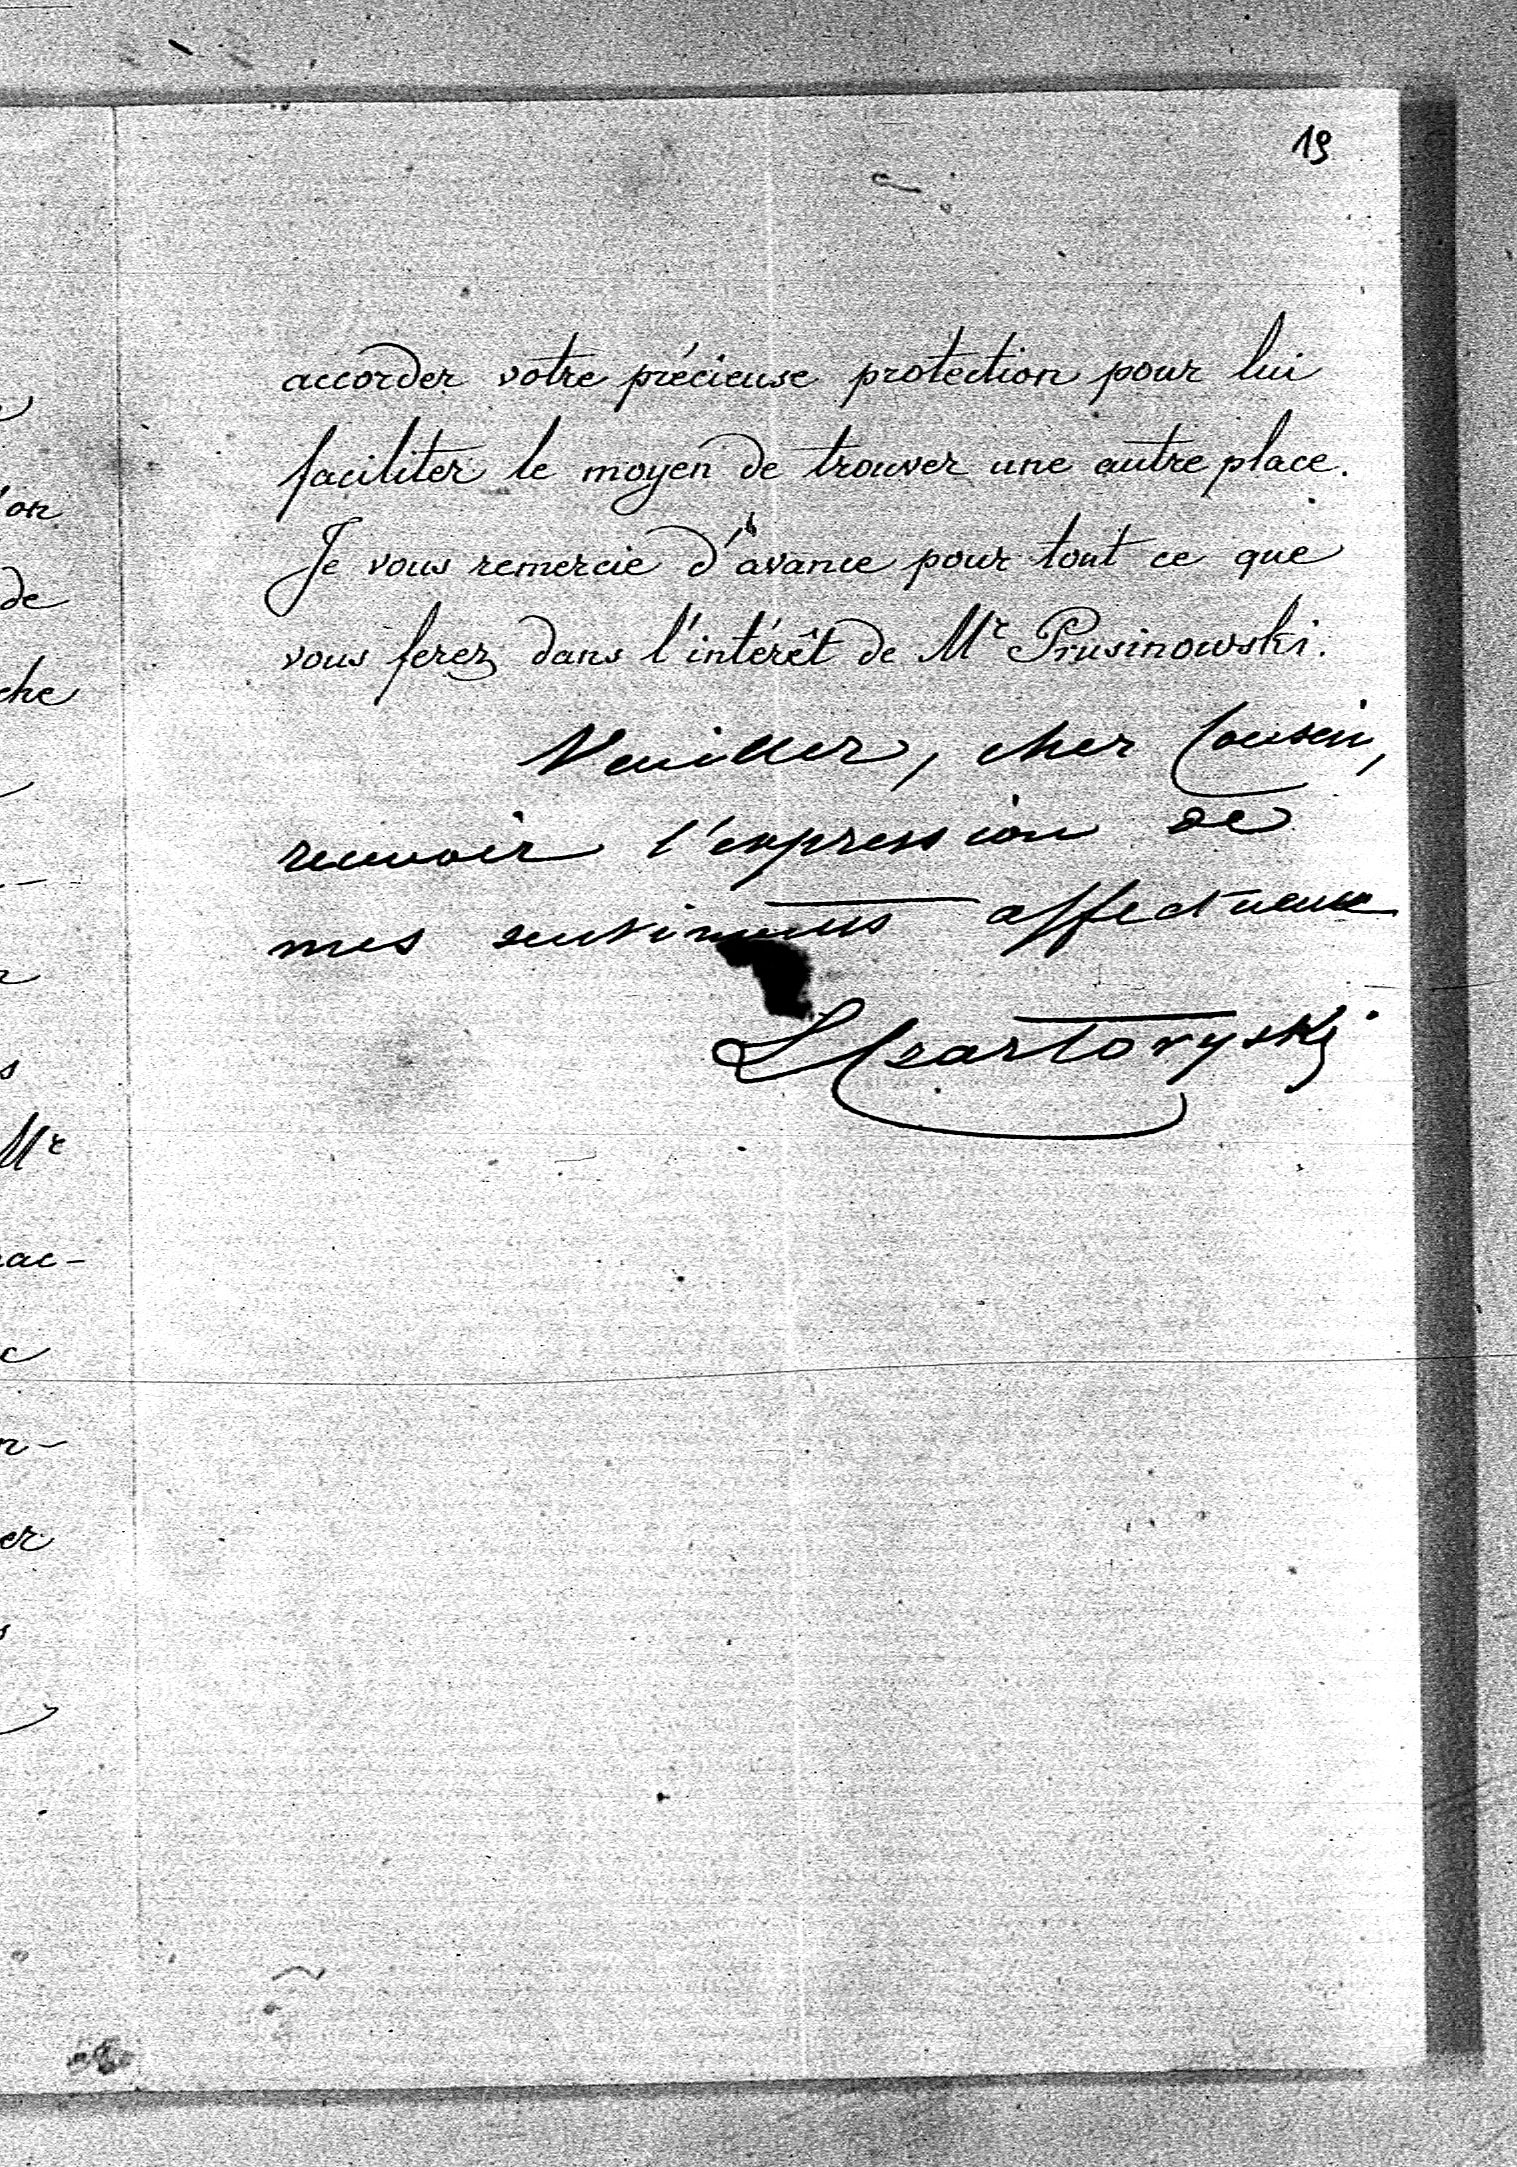 19
accorder votre précieuse protection pour lui
faciliter le moyen de trouver une autre place.
Je vous remercie d'avance pour tout ce que
vous ferez dans l'intérêt de Mr Prusinowski.
Veuillez, cher Cousin,
recevoir l'expression de
mes sentiments affectueux
L Czartoryski
on
de
che
s
Mr
ac-
c
er